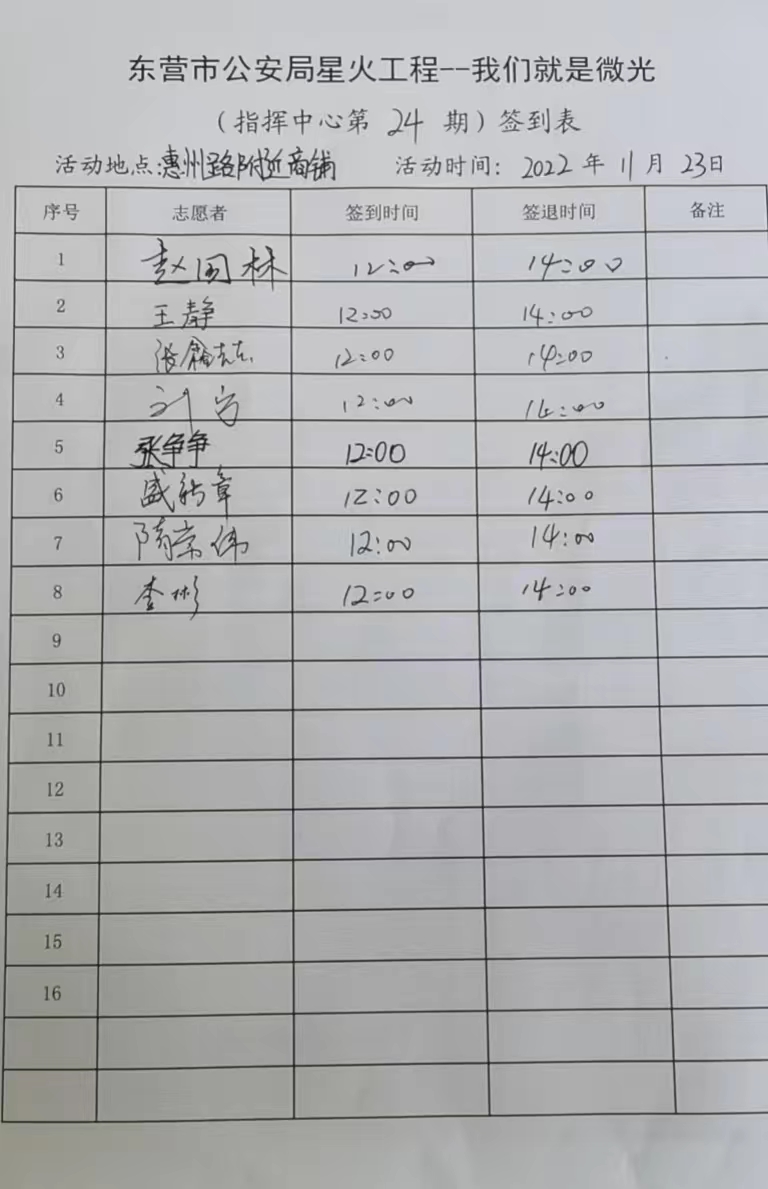 东营市公安局星火工程--我们就是微光
（指挥中心第 24 期）签到表
活动地点:惠州路附近商铺 活动时间: 2022 年 11 月 23日
序号 志愿者 签到时间 签退时间 备注
1 赵国林 12:00 14:00
2 王静 12:00 14:00
3 12:00 14:00
4 12:00 14:00
5 张争争 12:00 14:00
6 12:00 14:00
7 隋崇伟 12:00 14:00
8 李彬 12:00 14:00
9
10
11
12
13
14
15
16